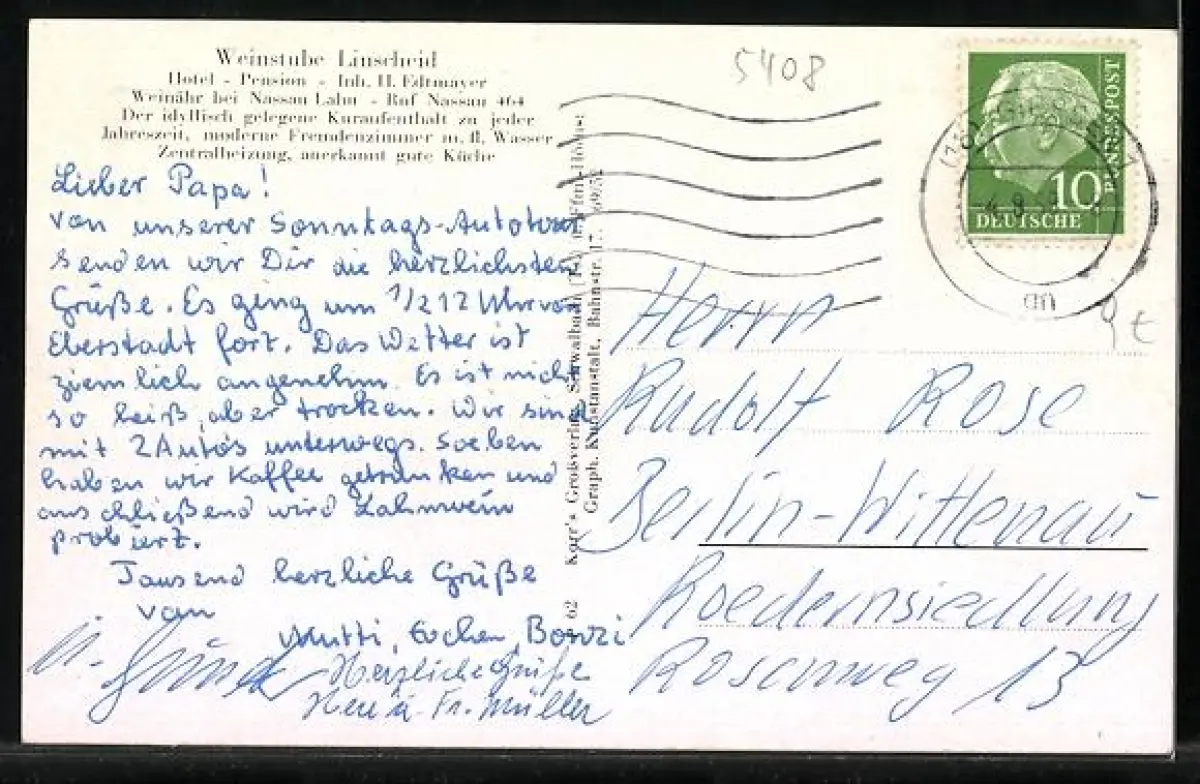 Weinstube Linscheid
Hotel - Pension - Inh. H. Edtmayer
Weinähr bei Nassau Lahn - Ruf Nassau 464
Der idyllisch gelegene Kuraufenthalt zu jeder
Jahreszeit, moderne Fremdenzimmer m. fl. Wasser
Zentralheizung, anerkannt gute Küche
5408
BUNDESPOST
10
DEUTSCHE
Lieber Papa!
von unserer Sonntags-Autotour
senden wir Dir die herzlichsten
Grüße. Es ging um 1/2 12 Uhr von
Eberstadt fort. Das Wetter ist
ziemlich angenehm. Es ist nicht
so heiß, aber trocken. Wir sind
mit 2 Autos unterwegs. Soeben
haben wir Kaffee getrunken und
anschließend wird Lahnwein
probiert.
Tausend herzliche Grüße
von
Mutti, Bonzi
Herzliche Grüße
Herr u. Fr. Müller
Großverlag, Schwalbach
Graph. Kunstanstalt, Bahnstr. 17
62
Herrn
Rudolf Rose
Berlin-Wittenau
Roedernsiedlung
Rosenweg 13